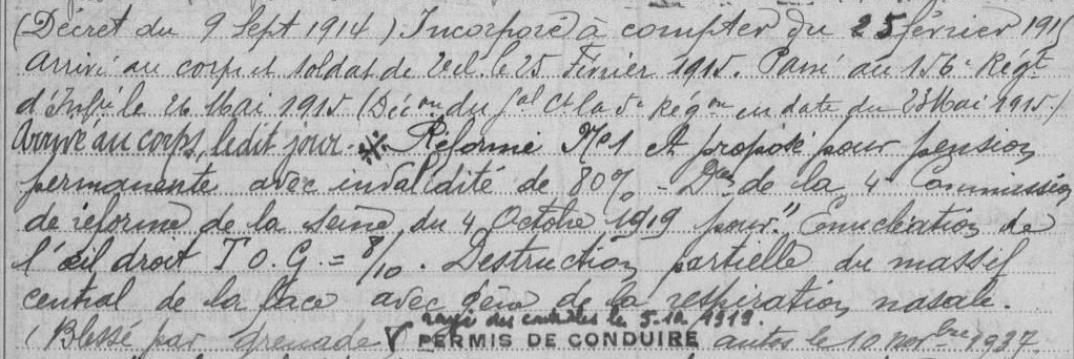 (Décret du 9 Sept 1914) Incorporé à compter du 25 février 1915
Arrivé au corps et soldat de 2e cl. le 25 Février 1915. Passé au 156e Régt
d'Infie le 26 Mai 1915 (Décon du Gal Ct la 5e Régon en date du 23 Mai 1915)
Arrivé au corps, ledit jour. Réformé No 1 et proposé pour pension
permanente avec invalidité de 80% - Don de la 4e Commission
de réforme de la Seine du 4 Octobre 1919 pour: "Enucléation de
l'œil droit T O. G. = 8/10. Destruction partielle du massif
central de la face avec gêne de la respiration nasale.
rayé des contrôles le 5-10 1919.
(Blessé par grenade PERMIS DE CONDUIRE autos le 10 novbre 1927